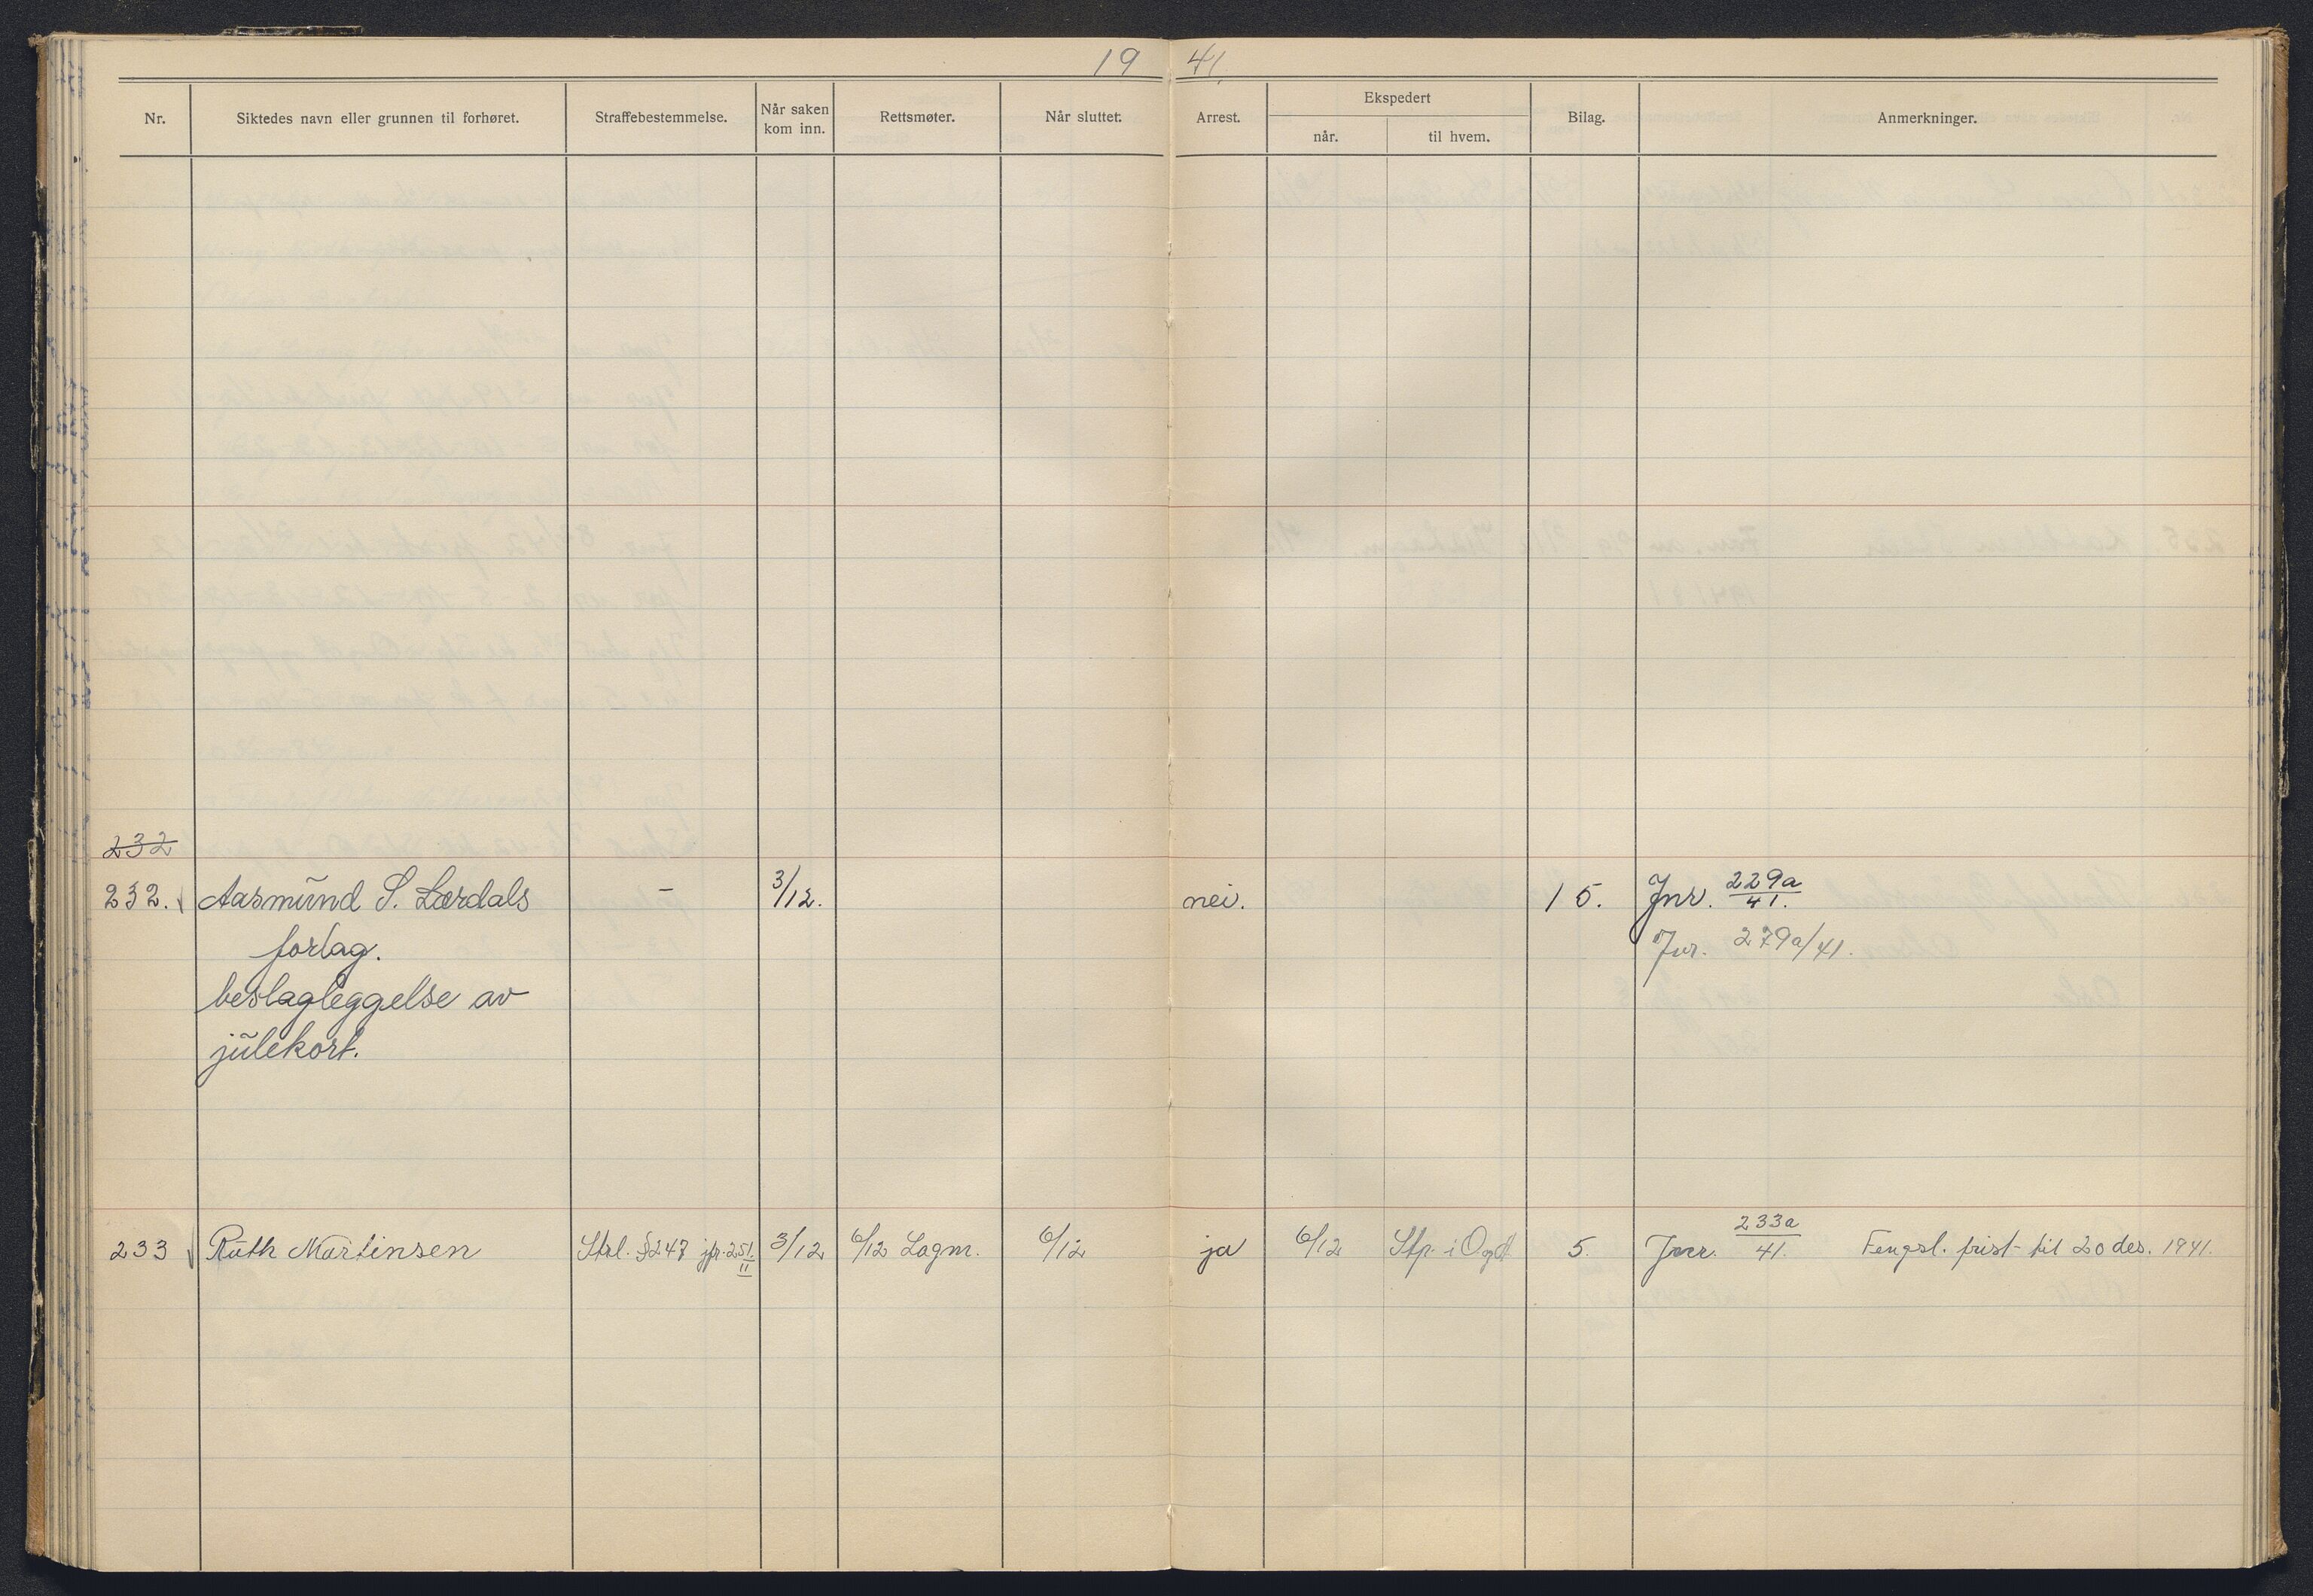 19 41.
Nr. Siktedes navn eller grunnen til forhøret. Straffebestemmelse. Når saken kom inn. Rettsmøter. Når sluttet. Arrest. Ekspedert når. til hvem. Bilag. Anmerkninger.
232
232. Aasmund S. Lærdals - 3/12. nei. 15. Jnr. 229a/41.
forlag. Jnr. 279a/41.
beslagleggelse av
julekort.
233 Ruth Martinsen Strl. §247 jfr. 251. II 3/12 6/12 Lagm. 6/12 ja 6/12 Stp. i O og A 5. Jnr. 233a/41. Fengsl. frist til 20 des. 1941.